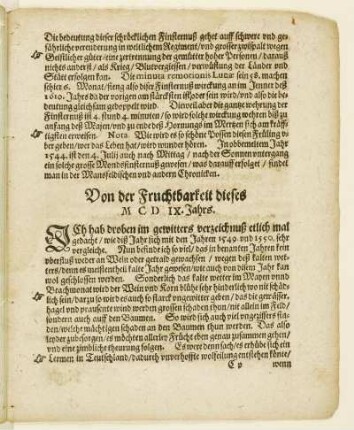 Die bedeutung dieser schröcklichen Finsternuß gehet auff schwere vnd ge-
fährliche verenderung in weltlichem Regiment / vnd grosser zwispalt wegen
Geistlicher güter / eine zertrennung der gemüter hoher Personen / darauß
nichts anders ist / als Krieg / Blutvergiessen / verwüstung der Länder vnd
Stäte erfolgen kan. Die minuta remotionis Lunæ sein 58. machen
schier 6. Monat / fieng also diser Finsternuß würckung an im Jenner deß
1610. Jahrs da der vorigen am stärcksten ist oder sein wird / vnd also die be-
deutung gleichsam gedoppelt wird. Dieweil aber die gantze wehrung der
Finsternuß ist 4. stund 4. minuten / so wird solche würckung wehren biß zu
anfang deß Mayen / vnd zu ende deß Hornungs im Mertzen sich am kräff-
tigsten erweisen. Nota. Wie wird es so schöne Possen diesen Früling v-
ber geben / wer das Leben hat / wird wunder hören. In obbemeltem Jahr
1544. ist den 4. Julij auch nach Mittag / nach der Sonnen vntergang
ein solche grosse Mondsfinsternuß gewesen / was darauff erfolget / findet
man in der Mansfeldischen vnd andern Chronicken.
Von der Fruchtbarkeit dieses
M C D IX. Jahrs.
ICh hab droben im gewitters verzeichnuß etlich mal
gedacht / wie diß Jahr sich mit den Jahren 1549. vnd 1550. sehr
vergleiche. Nun befinde ich so viel / das in benanten Jahren kein
vberfluß weder an Wein oder getraid gewachsen / wegen deß kalten wet-
ters / denn es meistentheil kalte Jahr gewesen / wie auch von disem Jahr kan
wol geschlossen werden. Sonderlich das kalte wetter im Mayen vnnd
Brachmonat wird der Wein vnd Korn blühe sehr hinderlich wo nit schäd-
lich sein / darzu so wird es auch so starck vngewitter geben / das die gewässer,
hagel vnd praussente wind werden grossen schaden thun / nit allein im Feld /
sondern auch auff den Baumen. So wird sich auch viel vngeziffers fin-
den / welchs mächtigen schaden an den Baumen thun werden. Das also
leyder zubesorgen / es möchten allerley Frücht eben genau zusammen gehen /
vnd eine zimbliche theurung folgen. Es were denn sach / es erhübe sich ein
Lermen in Teutschland / dadurch vnverhoffte wolfeilung entstehen könte /
C ij wenn